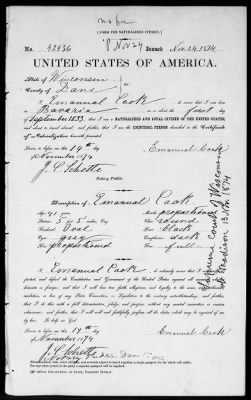 no fee
[FORM FOR NATURALIZED CITIZEN.]
Nov 27
No. 42436 Issued Nov. 24, 1874
UNITED STATES OF AMERICA.
State of Wisconsin
County of Dane
I Emanuel Cook, do swear that I was born
in Bavaria on or about the first day
of September 1833; that I am a NATURALIZED AND LOYAL CITIZEN OF THE UNITED STATES,
and about to travel abroad; and further, that I am the IDENTICAL PERSON described in the Certificate
of Naturalization herewith presented.
Sworn to before me this 19th day Emanuel Cook
of November 1874
Notary Public.
Description of Emanuel Cook
Age: 41 years Mouth: proportioned
Stature: 5 ft 5 inches, Eng. Chin: round
Forehead: Oval Hair: black
Eyes: gray Complexion: dark
Nose: proportioned Face: full
I Emanuel Cook do solemnly swear that I will
support, protect, and defend the Constitution and Government of the United States against all enemies, whether
domestic or foreign; and that I will bear true faith, allegiance, and loyalty to the same, any ordinance,
resolution, or law of any State, Convention, or Legislature to the contrary notwithstanding; and further,
that I do this with a full determination, pledge, and purpose, without any mental reservation or evasion
whatsoever; and further, that I will well and faithfully perform all the duties which may be required of me
by law: So help me God.
Sworn to before me this 19th day Emanuel Cook
of November 1874